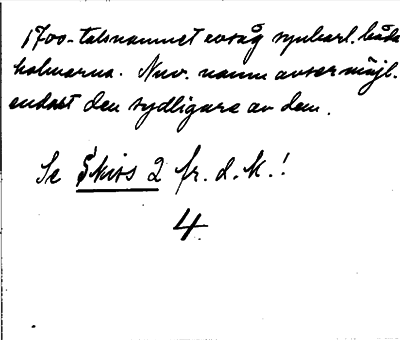 1700-talsnamnet avsåg synbarl. båda
holmarna. Nuv. namn avser möjl.
endast den sydligare av dem.
Se Skiss 2 fr. d. K.!
4.